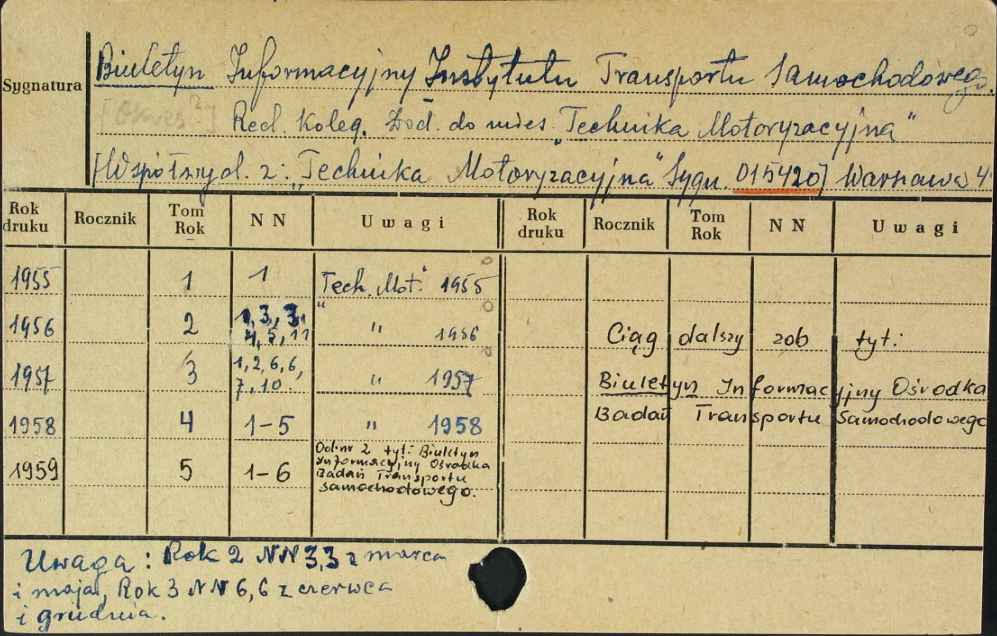 Sygnatura
Biuletyn Informacyjny Instytutu Transportu Samochodowego.
Red. Koleg. Dod. do mies. "Technika Motoryzacyjna"
[Współwyd. z: "Technika Motoryzacyjna" Sygn. 015420] Warszawa 4°
Rok druku Rocznik Tom Rok NN Uwagi Rok druku Rocznik Tom Rok NN Uwagi
1955 1 1 "Tech. Mot." 1955
1956 2 1, 3, 3, 4, 5, 11 " 1956
Ciąg dalszy zob tyt:
1957 3 1, 2, 6, 6, 7, 10. " 1957
Biuletyn Informacyjny Ośrodka
Badań Transportu Samochodowego
1958 4 1-5 " 1958
1959 5 1-6 Od nr 2 tyt: Biuletyn
Informacyjny Ośrodka
Badań Transportu
Samochodowego.
Uwaga: Rok 2 NN 3,3 z marca
i maja, Rok 3 NN 6,6 z czerwca
i grudnia.